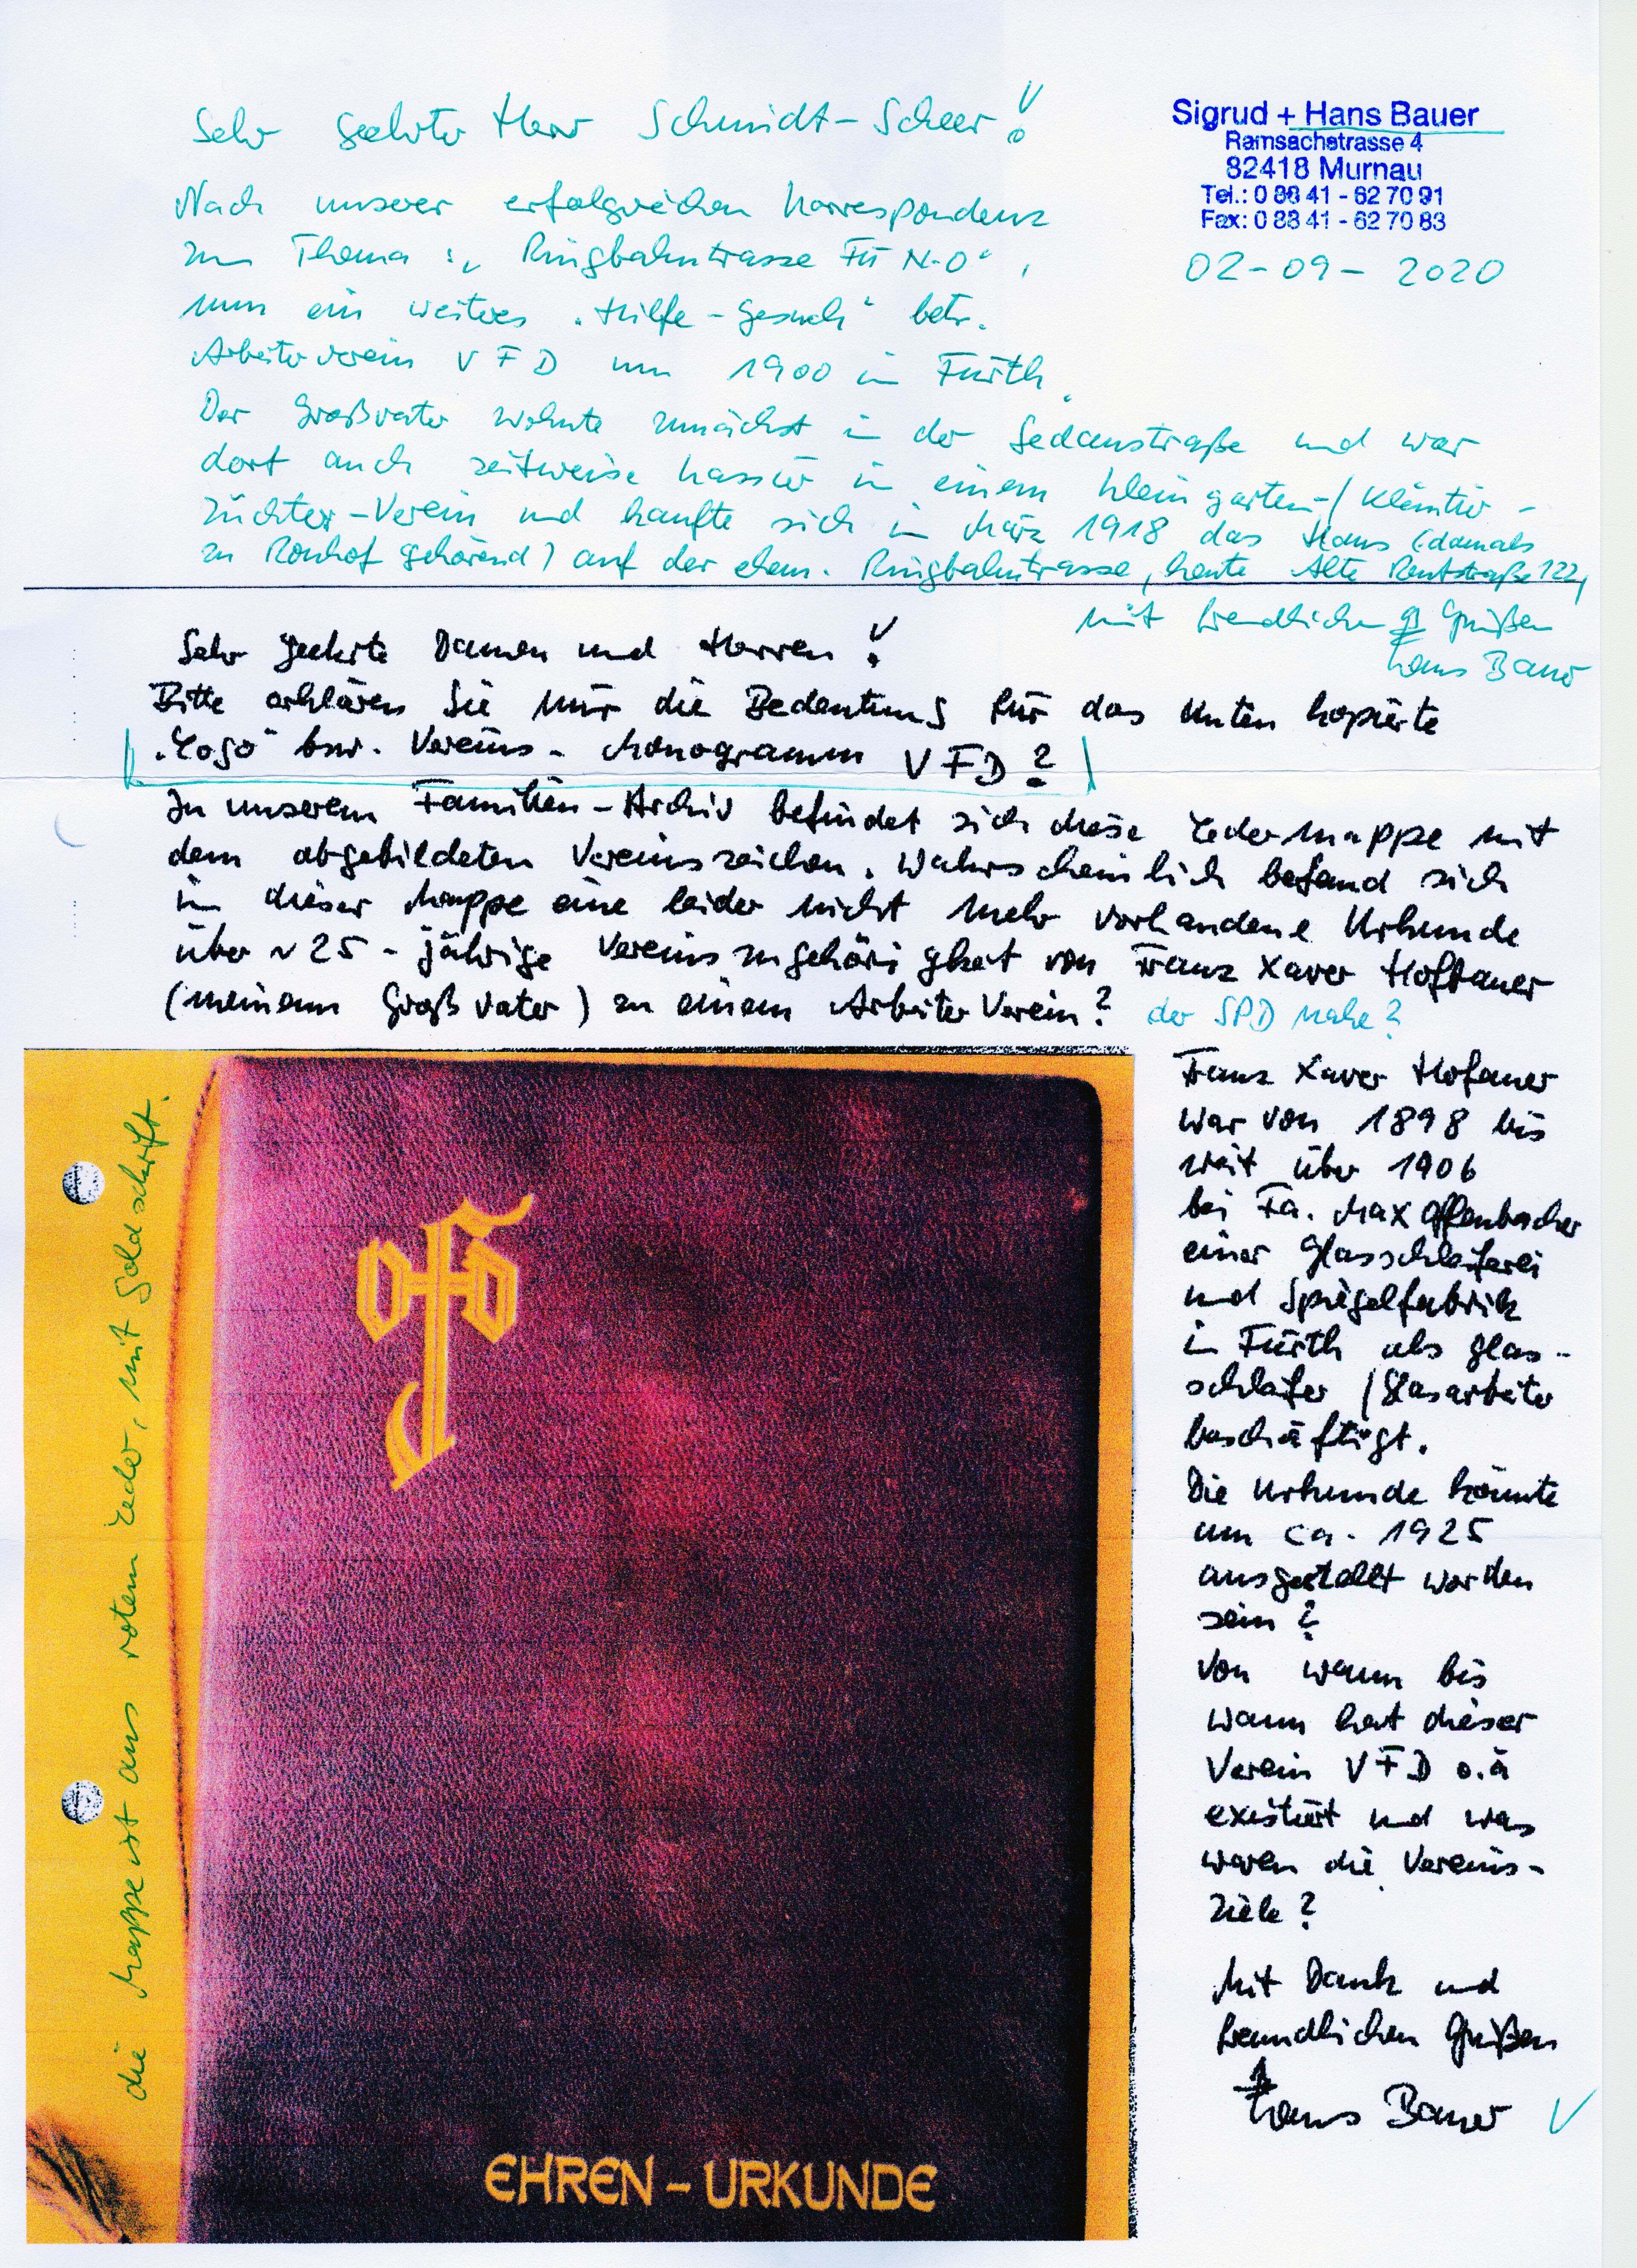 Sehr geehrter Herr Schmidt-Scheer!
Sigrud + Hans Bauer
Ramsachstrasse 4
82418 Murnau
Tel.: 0 88 41 - 62 70 91
Fax: 0 88 41 - 62 70 83
02-09-2020
Nach unserer erfolgreichen Korrespondenz
zum Thema: „Ringbahntrasse FÜ N-O",
nun ein weiteres „Hilfe-Gesuch" betr.
Arbeiterverein VFD um 1900 in Fürth.
Der Großvater wohnte zunächst in der Sedanstraße und war
dort auch zeitweise Kassier in einem Kleingarten-/Kleintier-
züchter-Verein und kaufte sich im März 1918 das Haus (damals
zu Ronhof gehörend) auf der ehem. Ringbahntrasse, heute Alte Reutstraße 122,
mit freundlichen Grüßen
Hans Bauer
Sehr geehrte Damen und Herren!
Bitte erklären Sie mir die Bedeutung für das unten kopierte
„Logo" bzw. Vereins-Monogramm VFD?
In unserem Familien-Archiv befindet sich diese Ledermappe mit
dem abgebildeten Vereinszeichen. Wahrscheinlich befand sich
in dieser Mappe eine leider nicht mehr vorhandene Urkunde
über ~25-jährige Vereinszugehörigkeit von Franz Xaver Hofbauer
(meinem Großvater) zu einem Arbeiter Verein? der SPD nahe?
Franz Xaver Hofauer
war von 1898 bis
weit über 1906
bei Fa. Max Offenbacher
einer Glasschleiferei
und Spiegelfabrik
in Fürth als Glas-
schleifer/Glasarbeiter
beschäftigt.
Die Urkunde könnte
um ca. 1925
ausgestellt worden
sein?
Von wann bis
wann hat dieser
Verein VFD o.ä
existiert und was
waren die Vereins-
Ziele?
Mit Dank und
freundlichen Grüßen
Hans Bauer
die Mappe ist aus rotem Leder, mit Goldschrift.
EHREN-URKUNDE